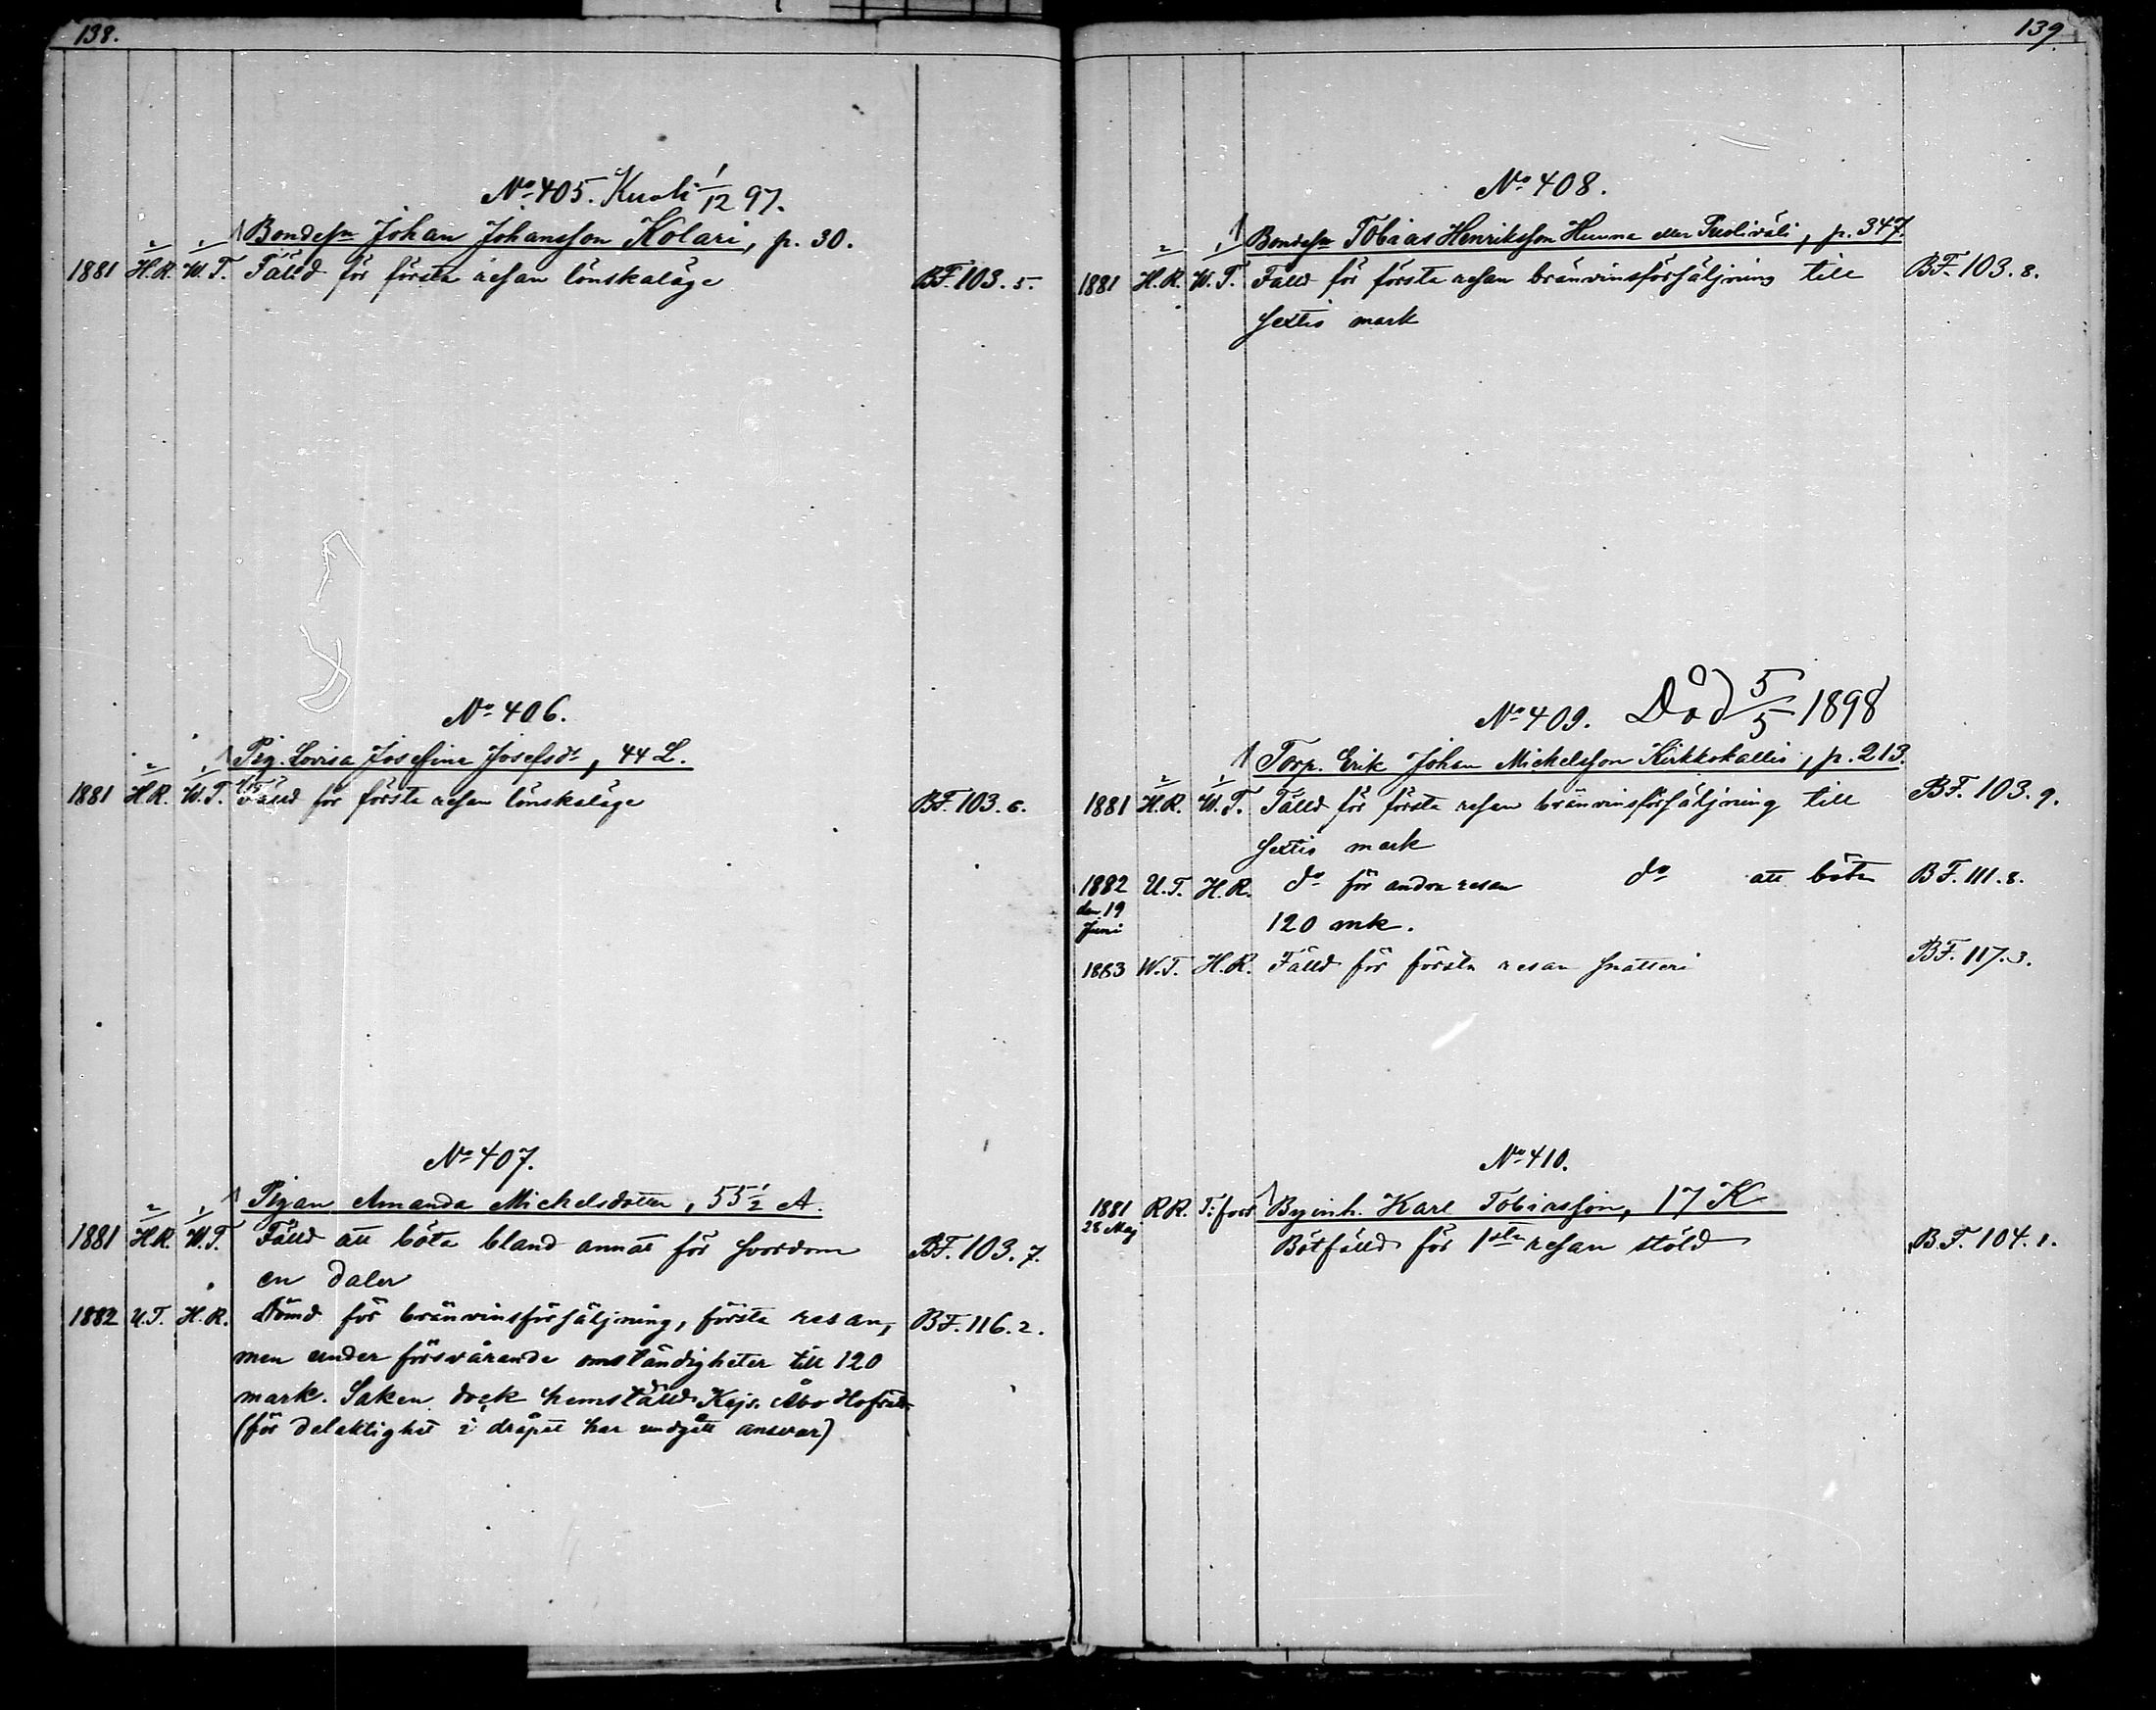 138.
No 405. Kuoli 1/12 97.
Bondesn Johan Johansson Kolari, p. 30.
1881 2/H.R. 1/W.T. Fälld för första resan lönskaläge BF. 103. 5.
No 406.
Pig. Lovisa Josefina Josefsdr, 44 L.
1881 2/H.R. 1/W.T. Fälld för första resan lönskaläge BF. 103. 6.
No 407.
Pigan Amanda Michelsdotter, 55 1/2 A.
1881 2/H.R. 1/W.T. Fälld att böta bland annat för svordom BF. 103. 7.
en daler
1882 U.T. H.R. Dömd för bränvinsförsäljning, första resan, BF. 116. 2.
men under försvårande omständigheter till 120
mark. Saken dock hemställd Kejs. Åbo Hofrätt
(för delaktighet i dråpet har undgått ansvar)
139.
No 408.
Bondesn Tobias Henriksson Hunna eller Puoliväli, p. 347.
1881 2/H.R. 1/W.T. Fälld för första resan bränvinsförsäljning till BF. 103. 8.
sextio mark
No 409. Död 5/5 1898
Torp. Erik Johan Michelsson Kirkkokallio, p. 213.
1881 2/H.R. 1/W.T. Fälld för första resan bränvinsförsäljning till BF. 103. 9.
sextio mark
1882 U.T. H.R. do för andra resan do att böta BF. 111. 8.
den 19
Juni 120 mk.
1883 W.T. H.R. Fälld för första resan snatteri BF. 117. 3.
No 410.
1881 R.R. T:fors Byinh. Karl Tobiasson, 17 K
28 Maj Bötfälld för 1sta resan stöld B.F. 104. 1.